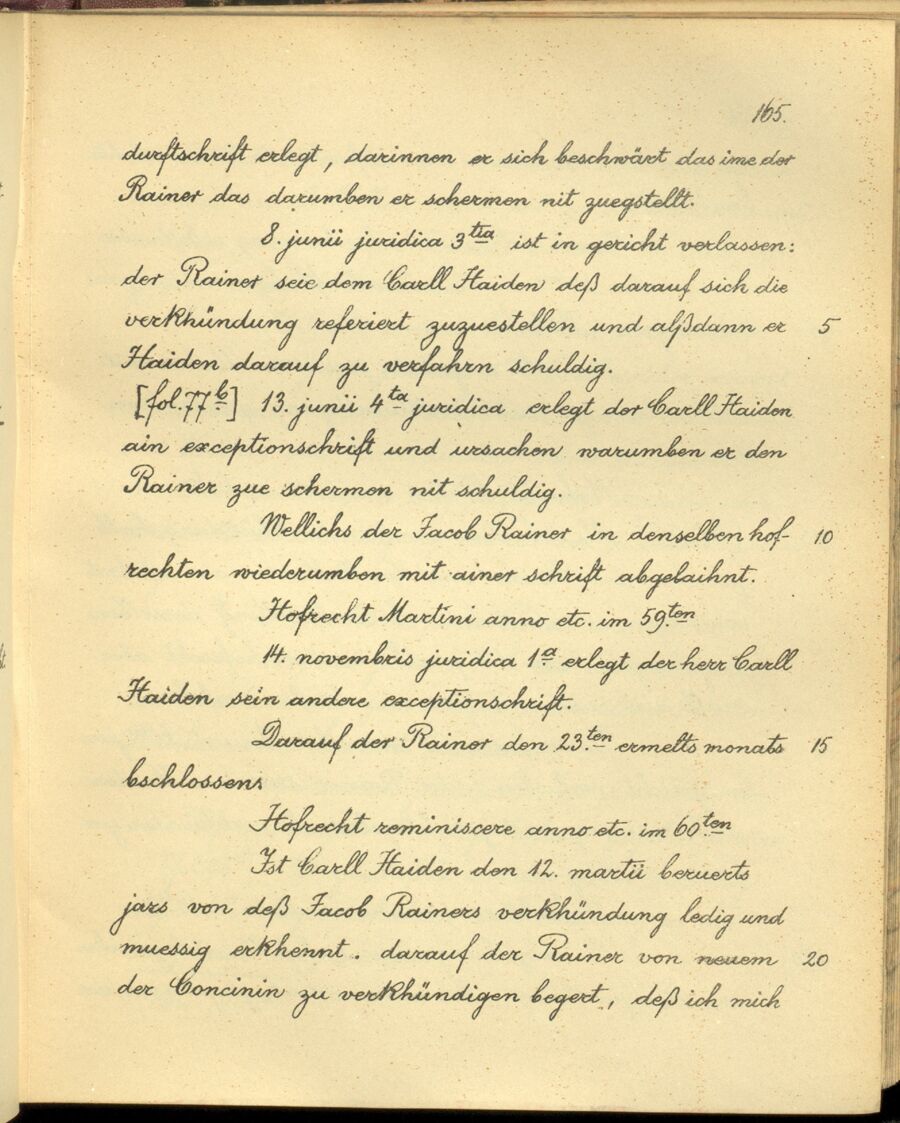 165.
durftschrift erlegt, darinnen er sich beschwärt das ime der
Rainer das darumben er schermen nit zuegstellt.
8. junii juridica 3tia ist in gericht verlassen:
der Rainer seie dem Carll Haiden deß darauf sich die
verkhündung referiert zuzuestellen und alßdann er 5
Haiden darauf zu verfahrn schuldig.
[fol. 77b] 13. junii 4ta juridica erlegt der Carll Haiden
ain exceptionschrift und ursachen warumben er den
Rainer zue schermen nit schuldig.
Wellichs der Jacob Rainer in denselben hof- 10
rechten wiederumben mit ainer schrift abgelaihnt.
Hofrecht Martini anno etc. im 59.ten
14. novembris juridica 1a erlegt der herr Carll
Haiden sein andere exceptionschrift.
Darauf der Rainer den 23.ten ermelts monats 15
bschlossen.
Hofrecht reminiscere anno etc. im 60ten
Ist Carll Haiden den 12. martii beruerts
jars von deß Jacob Rainers verkhündung ledig und
muessig erkhennt. darauf der Rainer von neuem 20
der Concinin zu verkhündigen begert, deß ich mich